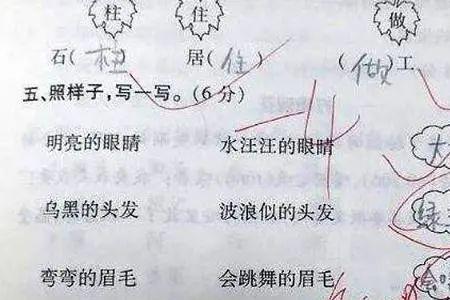 柱 住 做
石(柱) 居(住) (做)工
五、照样子,写一写。(6分)
明亮的眼睛 水汪汪的眼睛 大
乌黑的头发 波浪似的头发 绿
弯弯的眉毛 会跳舞的眉毛 会